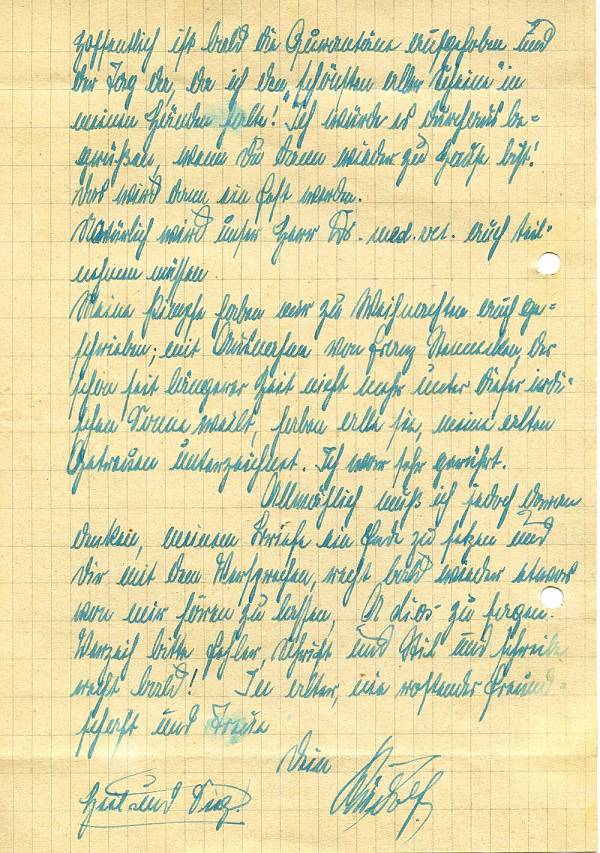 Hoffentlich ist bald die Quarantäne aufgehoben und
der Tag da, da ich den „schönsten aller Scheine" in
meinen Händen halte! Ich würde es durchaus be-
grüßen, wenn Du dann wieder zu Hause bist!
Das wird dann ein Fest werden.
Natürlich wird unser Herr Dr. med. vet. auch teil-
nehmen müssen
Meine Pimpfe haben mir zu Weihnachten auch ge-
schrieben; mit Ausnahme von Franz der
schon seit längerer Zeit nicht mehr unter dieser irdi-
schen Sonne weilt, haben alle sie, meine alten
Getreuen unterzeichnet. Ich war sehr gerührt.
Allmählich muß ich jedoch daran
denken, meinem Briefe ein Ende zu setzen und
Dir mit dem Versprechen, recht bald wieder etwas
von mir hören zu lassen, Adios zu sagen.
Verzeih bitte Fehler, Schrift und Stil und schreibe
recht bald! In alter, nie rostender Freund-
schaft und Treue
Dein
Heil und Sieg! Rudolf.